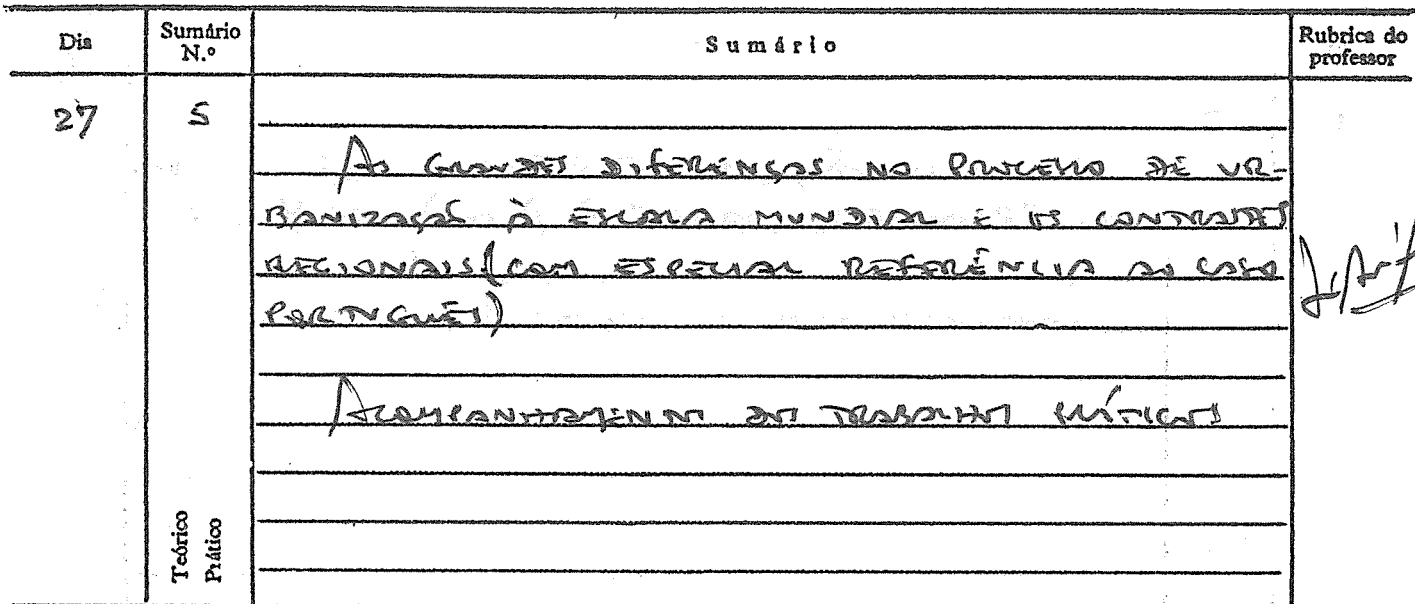 Dia
Sumário N.º
Sumário
Rubrica do professor
27
5
As GRANDES DIFERENÇAS NO PROCESSO DE UR-
BANIZAÇÃO À ESCALA MUNDIAL E OS CONTRASTES
REGIONAIS (COM ESPECIAL REFERÊNCIA AO CASO
PORTUGUÊS)
ACOMPANHAMENTO DOS TRABALHOS PRÁTICOS
Teórico
Prático